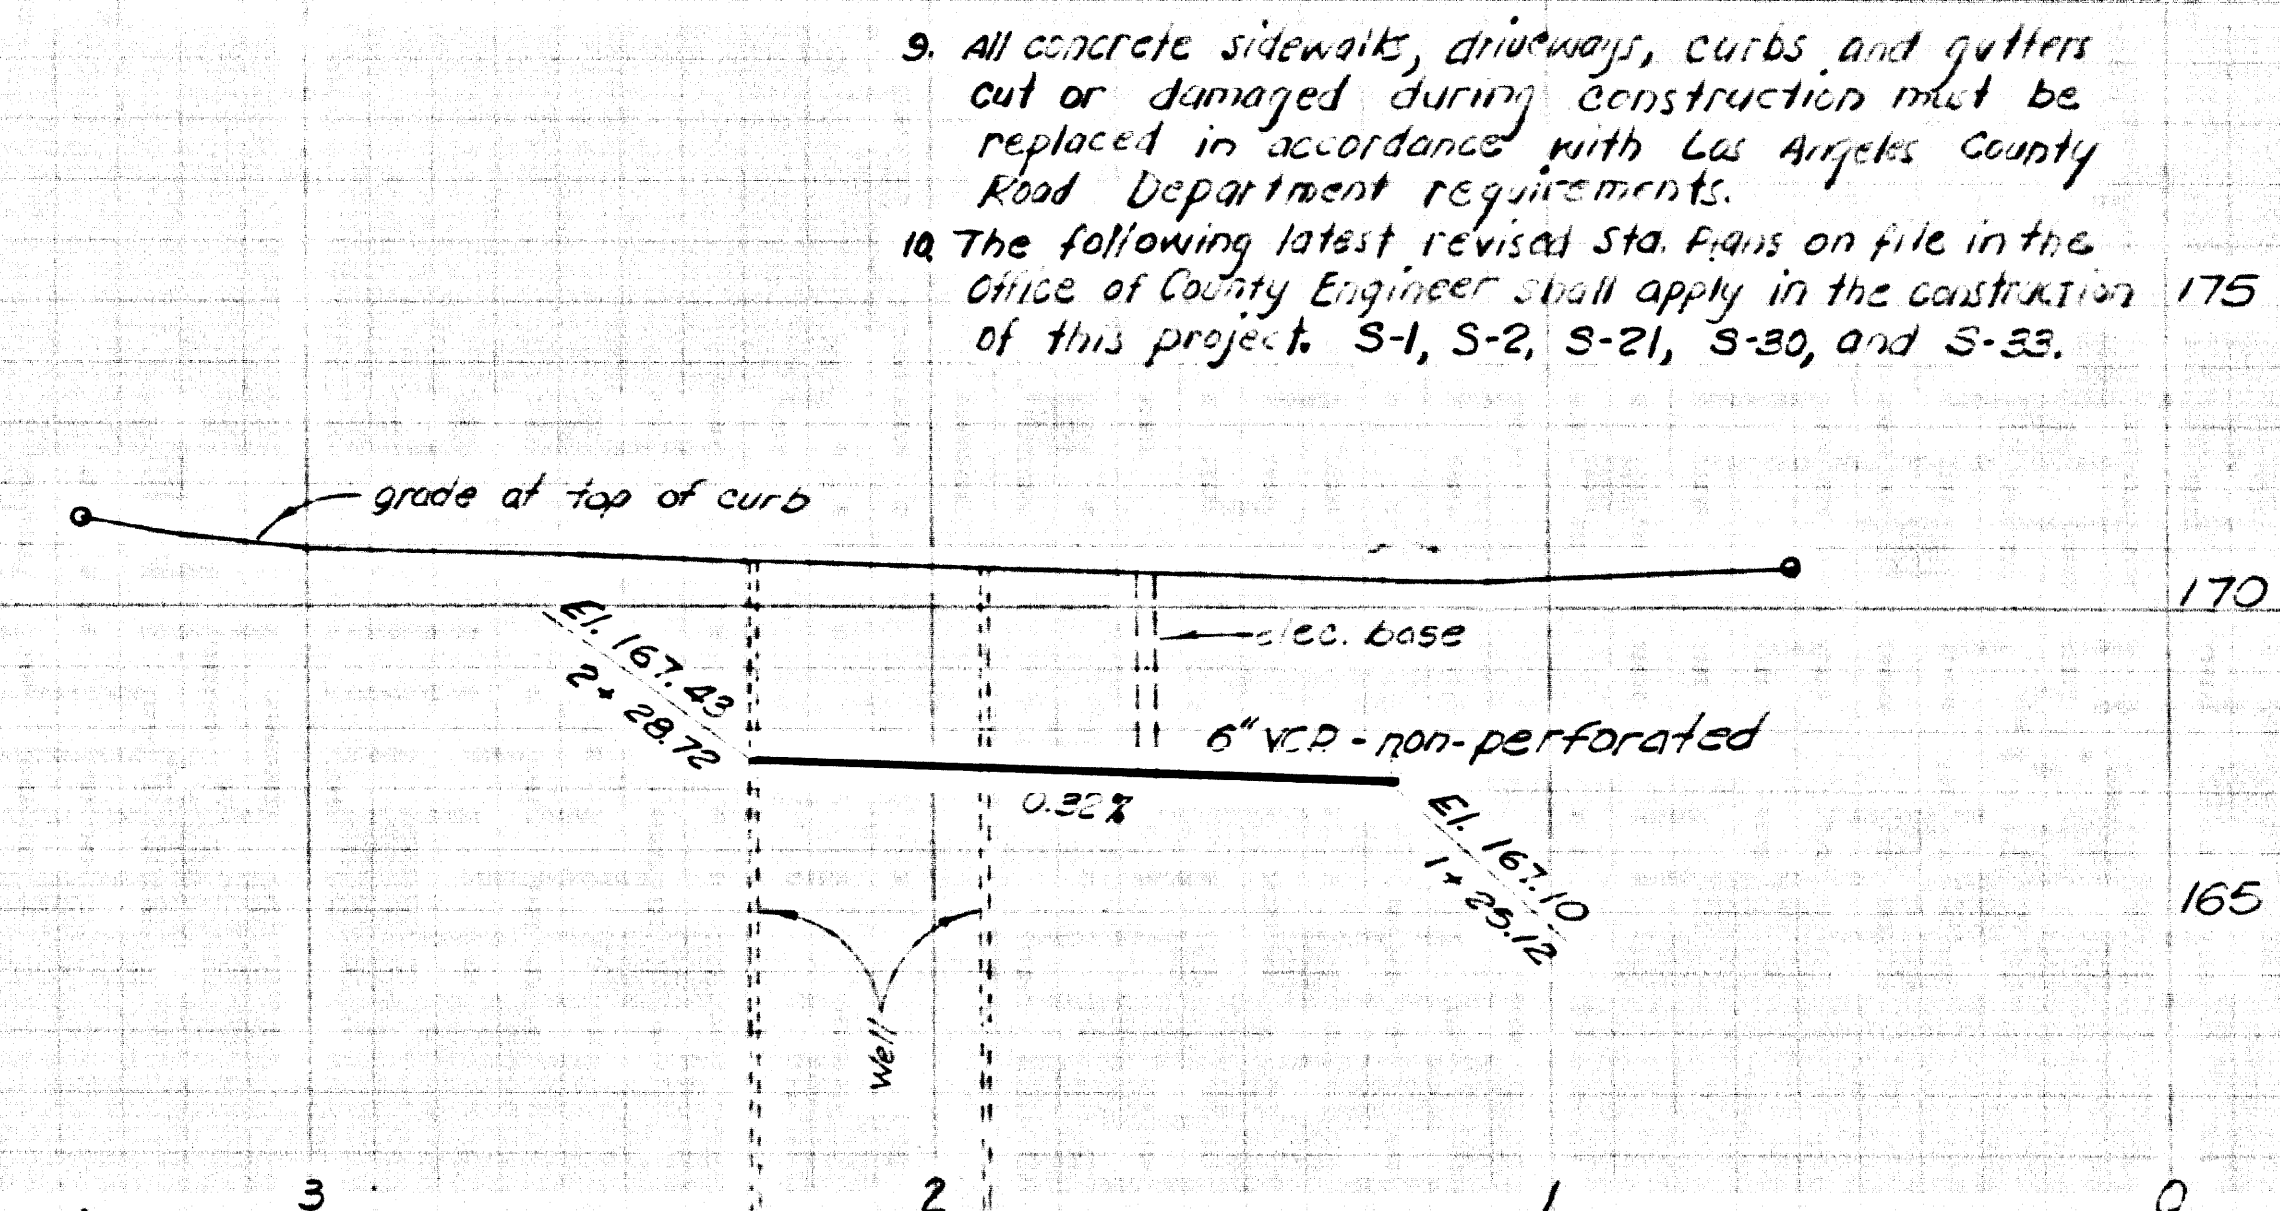 9. All concrete sidewalks, driveways, curbs and gutters
cut or damaged during construction must be
replaced in accordance with Los Angeles County
Road Department requirements.
10. The following latest revised Std. Plans on file in the
Office of County Engineer shall apply in the construction
of this project. S-1, S-2, S-21, S-30, and S-33.
175
grade at top of curb
170
elec. base
El. 167.43
2+28.72
6" VCP - non-perforated
0.32%
El. 167.10
1+25.12
165
Well
3
2
1
0